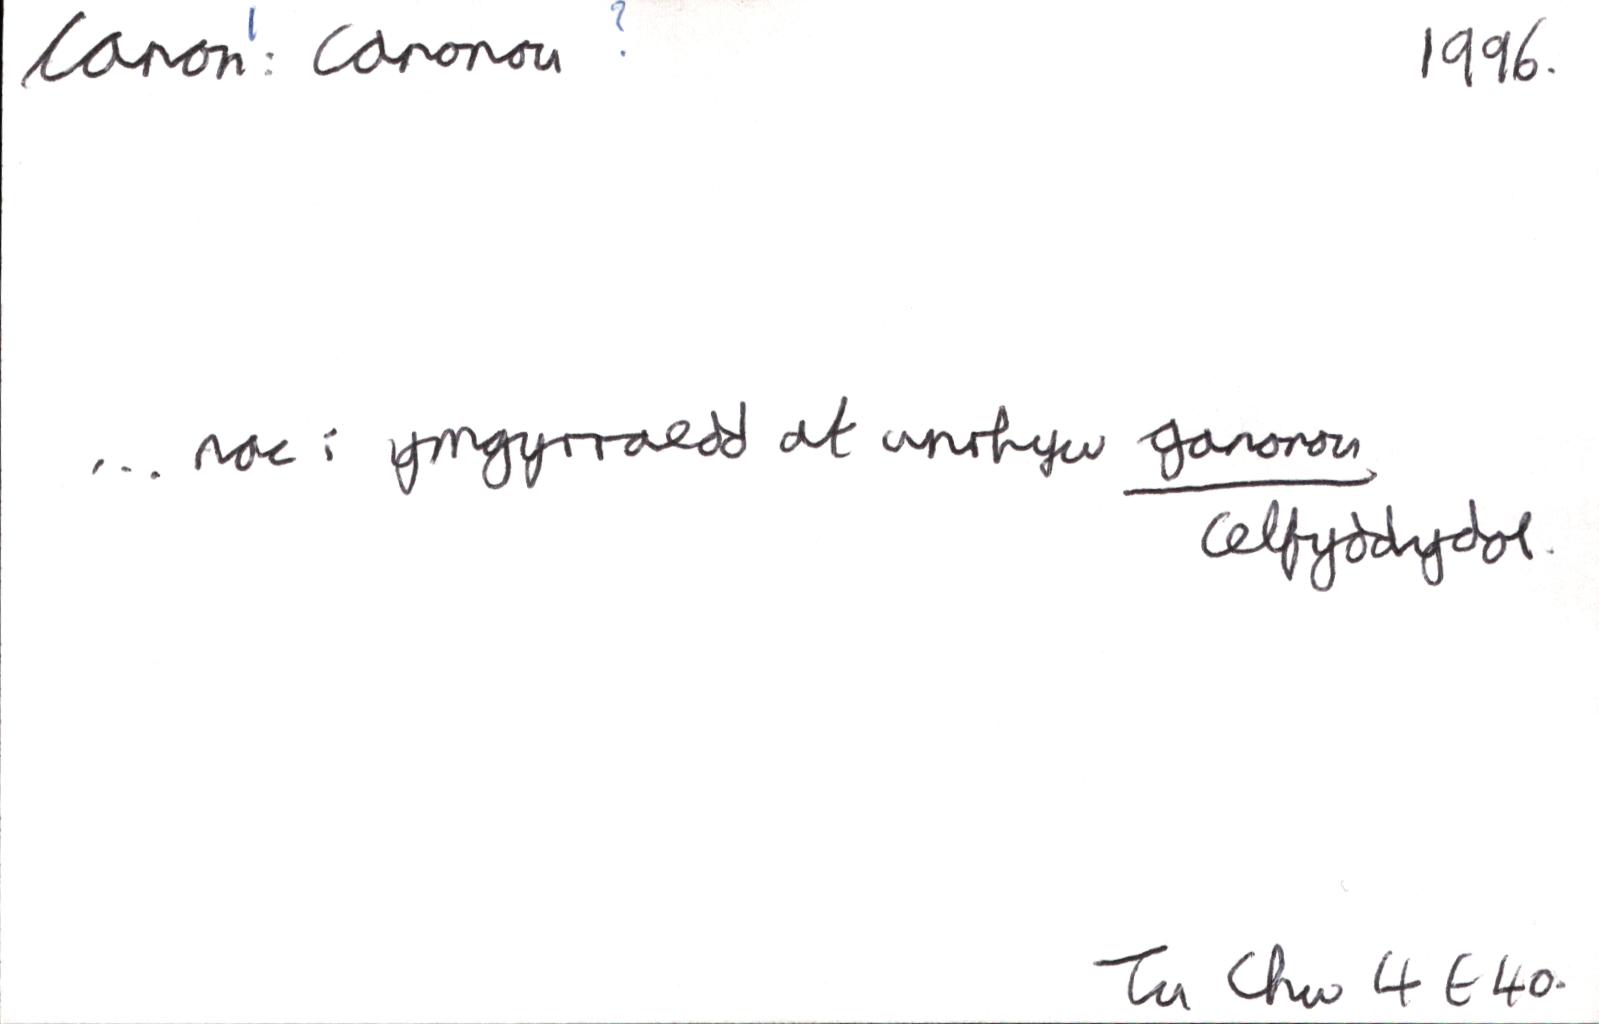 Canon¹: Canonou ? 1996.
... nac i ymgyrraedd at unrhyw ganonou
celfyddydol.
Tu Chw 4 E 40.